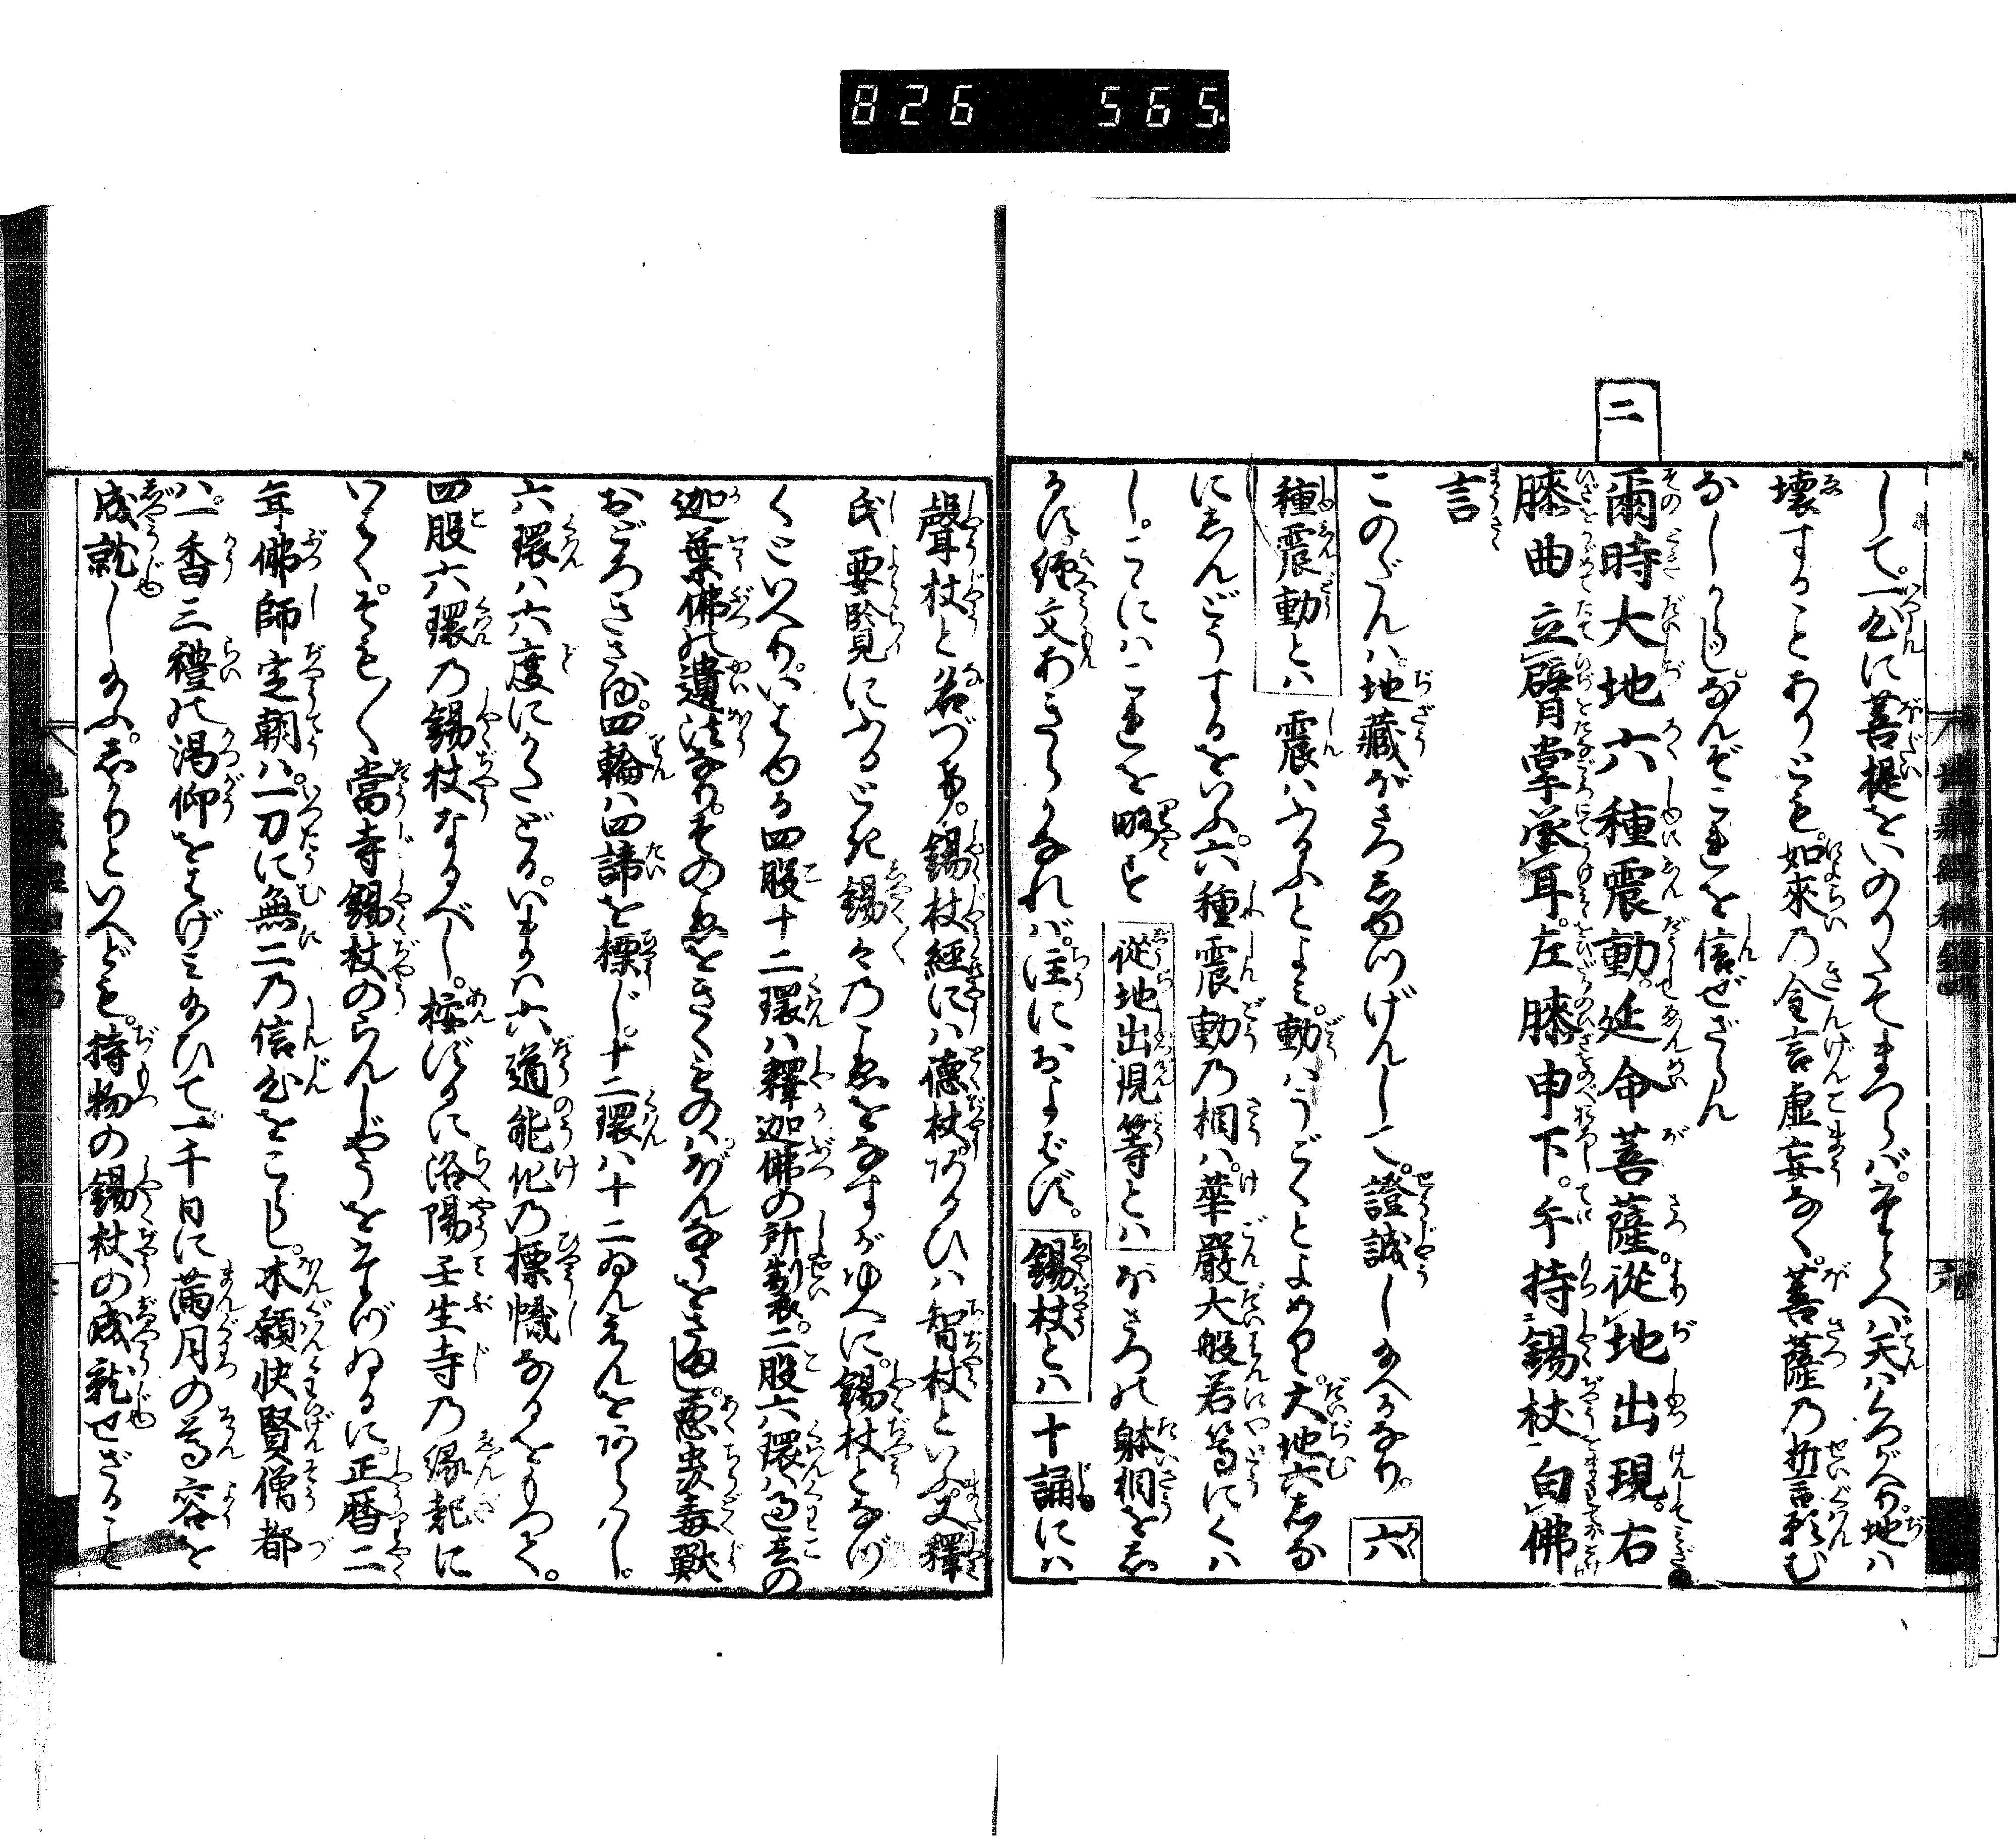 826 565
して。一心に菩提をいのりたてまつらバ。たとへバ天ハくづべく地ハ
壊することありとも。如來乃金言虚妄なく。菩薩乃誓願む
なしからじ。なんぞこれを信ぜざらん
二
爾時大地六種震動。延命菩薩。從地出現。右
膝曲立。臂掌拳耳。左膝申下。手持錫杖。白佛
言
このだんハ。地藏ぼさつ志ゆつげんして。證誠し給ふなり。六
種震動とハ 震ハふるふとよミ。動ハうごくとよめり。大地六志な
に志んどうするをいふ。六種震動乃相ハ。華嚴大般若等にくハ
し。こゝにハこれを略す 從地出現等とハ ぼさつの躰相を志
るす。經文あきらかなれバ。注におよばず。 錫杖とハ 十誦にハ
聲杖と名づけ。錫杖經にハ德杖。あるひハ智杖といふ。又釋
氏要覧にふるとき錫々乃こゑをなすがゆへに。錫杖となづ
くといへり。いはゆる四股十二環ハ釋迦佛の所製。二股六環ハ過去の
迦葉佛の遺法なり。そのこゑをきくものハ。ぼんなうをさまし。悪蟲毒獸
おどろきさる。四輪ハ四諦を標じ。十二環ハ十二ゐんえんをあらハし。
六環ハ六度にかたどる。いまハ六道能化乃標幟なるをもつて。
四股六環乃錫杖なるべし。按ずるに洛陽壬生寺乃縁起に
いはく。そも〳〵當寺錫杖のらんじやうをたづぬるに。正暦二
年佛師定朝ハ。一刀に無二乃信心をこらし。本願快賢僧都
ハ。一香三禮の渇仰をさゝげミ給ひて。一千日に満月の尊容を
成就し給ふ。志かりといへども。持物の錫杖の成就せざること